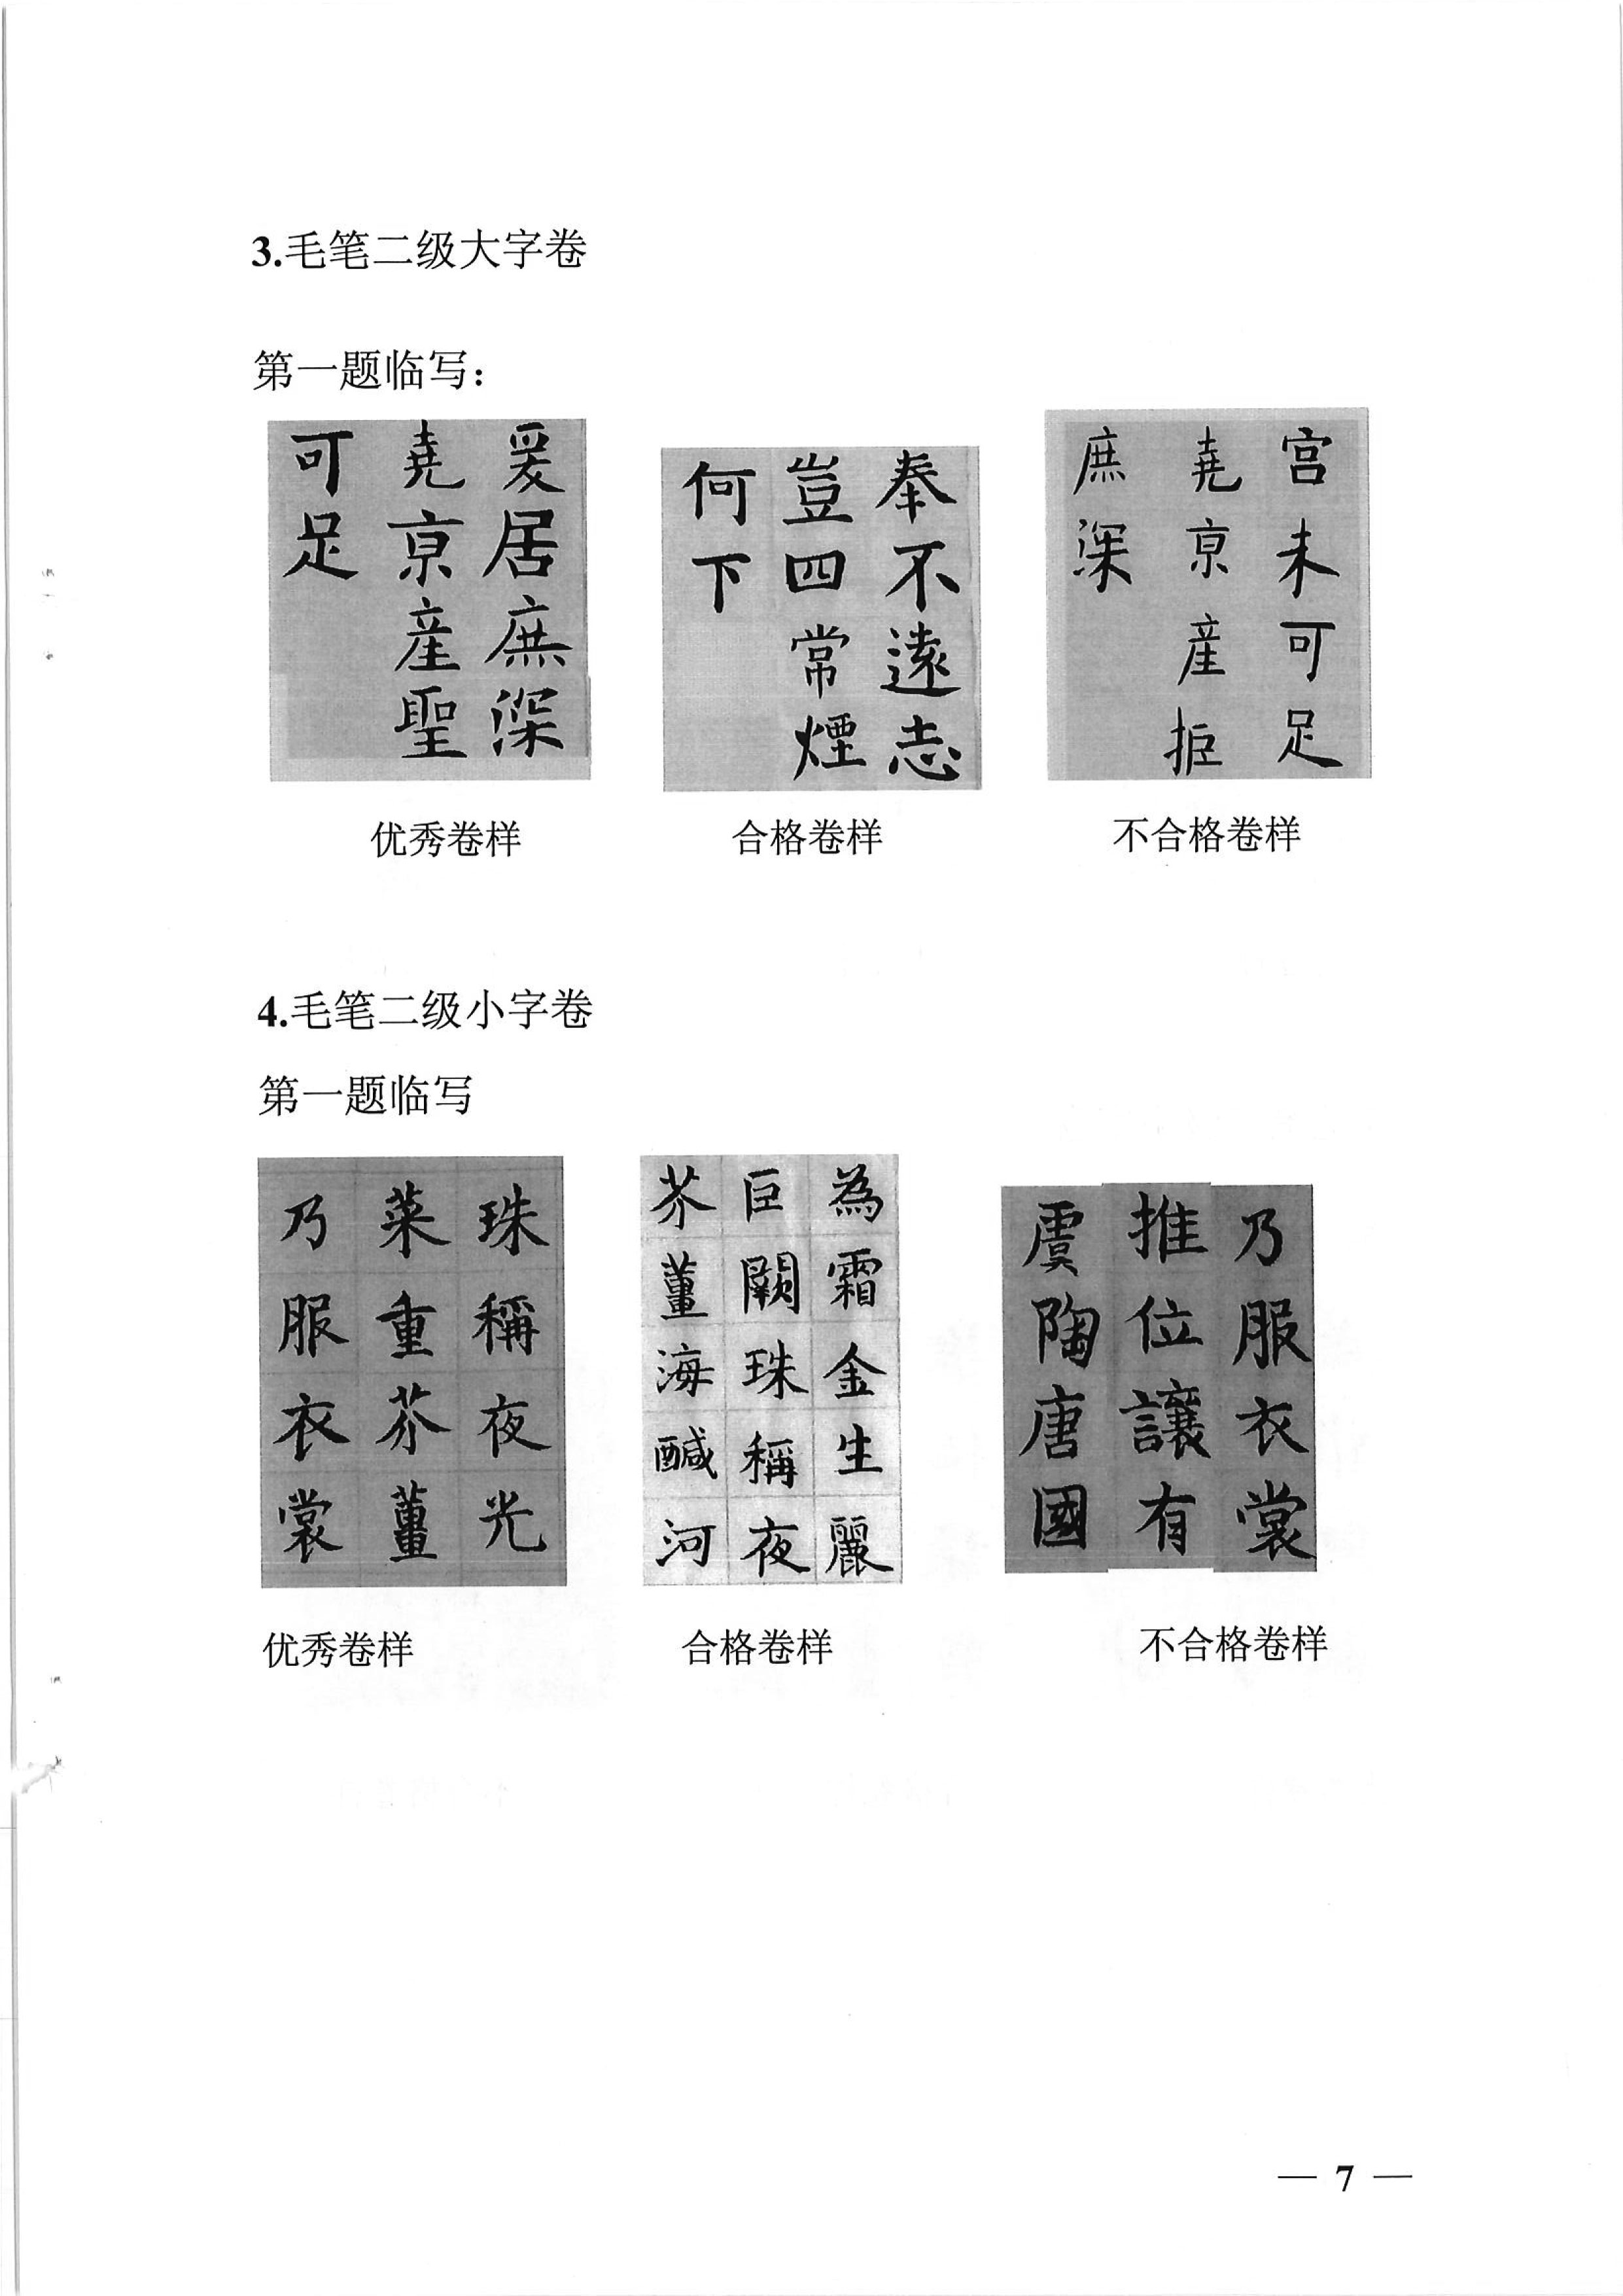 3.毛笔二级大字卷
第一题临写：
爰居庶深
堯京産聖
可足
奉不遠志
豈四常煙
何下
宫未可足
堯京産拒
庶深
优秀卷样
合格卷样
不合格卷样
4.毛笔二级小字卷
第一题临写
珠稱夜光
菜重芥薑
乃服衣裳
為霜金生麗
巨闕珠稱夜
芥薑海鹹河
乃服衣裳
推位讓有
虞陶唐國
优秀卷样
合格卷样
不合格卷样
— 7 —